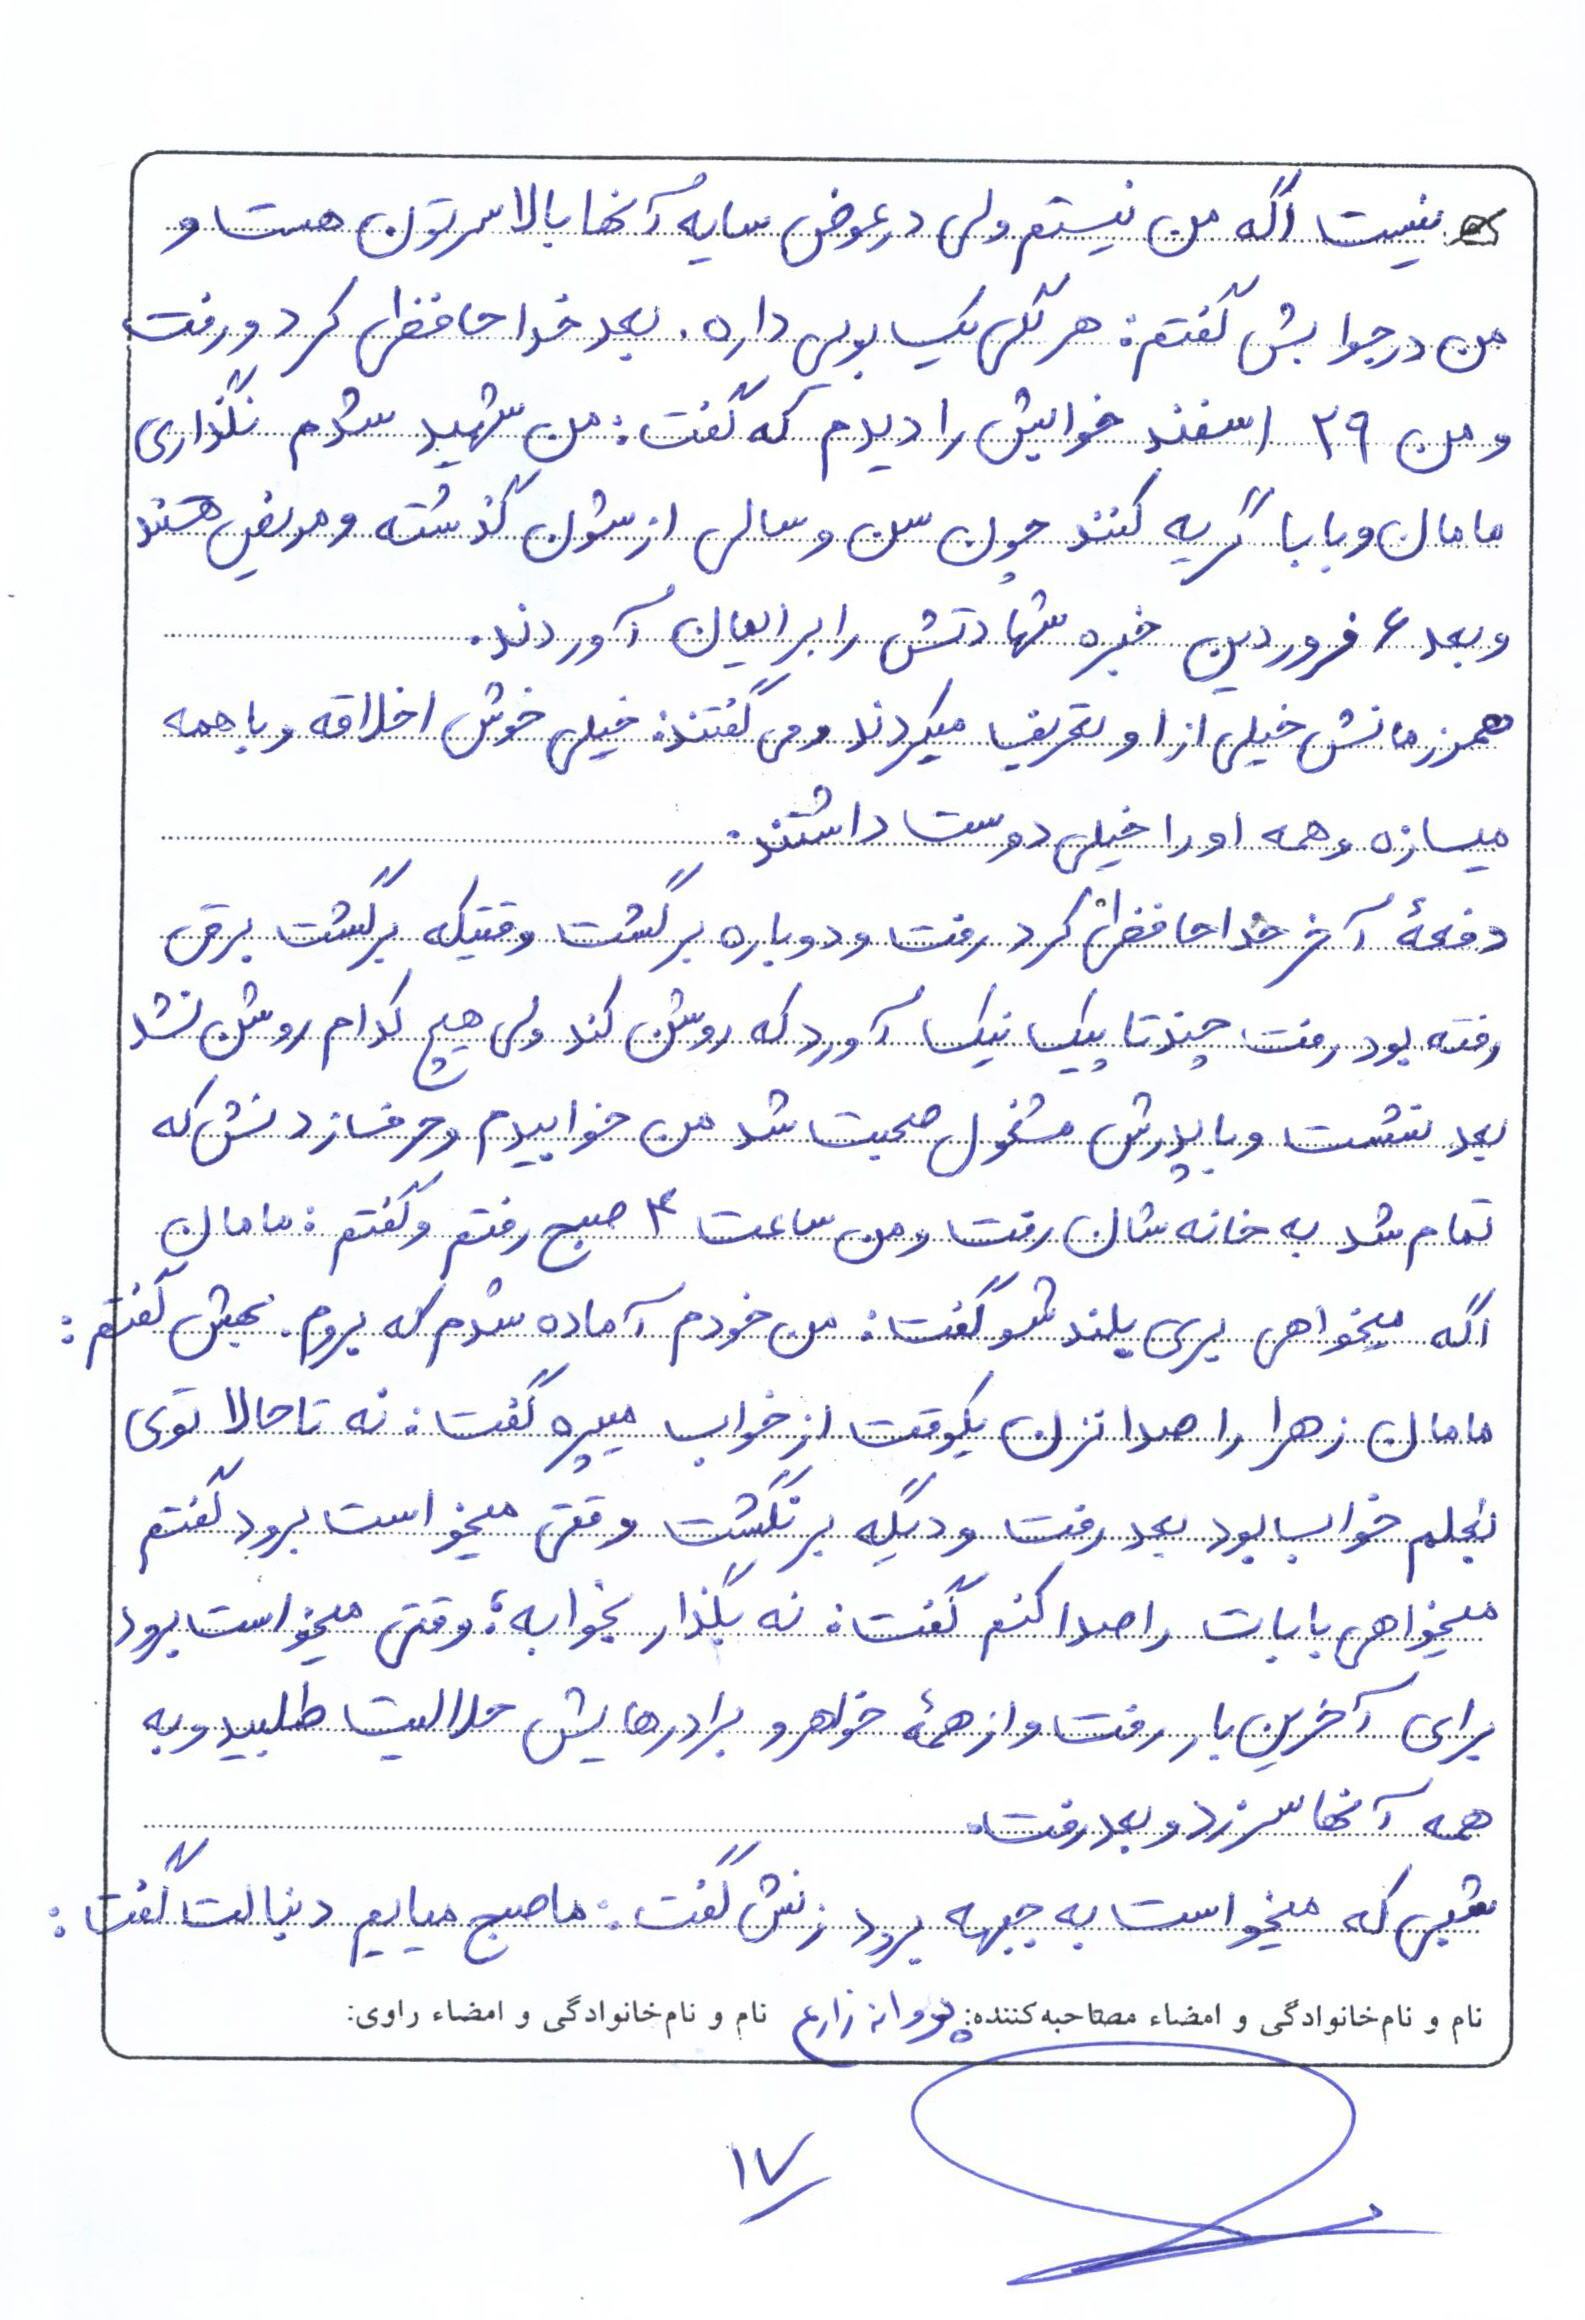 نیست اگه من نیستم ولی درعوض سایهٔ آنها بالا سرتون هست و
من درجوابش گفتم: هر گلی یک بویی داره. بعد خداحافظی کرد و رفت
و من ۲۹ اسفند خوابش را دیدم که گفت: من شهید شدم نگذاری
مامان و بابا گریه کنند چون سن و سالی ازشون گذشته و مریض هستند
و بعد ۶ فروردین خبره شهادتش را برایمان آوردند.
همرزمانش خیلی از او تعریف میکردند و می گفتند: خیلی خوش اخلاقه و با همه
میسازه و همه او را خیلی دوست داشتند.
دفعهٔ آخر خداحافظی کرد رفت و دوباره برگشت وقتیکه برگشت برق
رفته بود رفت چندتا پیک نیک آورد که روشن کند ولی هیچ کدام روشن نشد
بعد نشست و با پدرش مشغول صحبت شد من خوابیدم و حرف زدنش که
تمام شد به خانه شان رفت و من ساعت ۴ صبح رفتم و گفتم: مامان
اگه میخواهی بری بلند شو گفت: من خودم آماده شدم که بروم. بهش گفتم:
مامان زهرا را صدا نزن یکوقت از خواب میپره گفت: نه تا حالا توی
بغلم خواب بود بعد رفت و دیگه برنگشت وقتی میخواست برود گفتم
میخواهی بابات را صدا کنم گفت: نه بگذار بخوابه؛ وقتی میخواست برود
برای آخرین بار رفت و از همهٔ خواهر و برادرهایش حلالیت طلبید و به
همه آنها سر زد و بعد رفت.
شبی که میخواست به جبهه برود زنش گفت: ما صبح میاییم دنبالت گفت:
نام و نام خانوادگی و امضاء مصاحبه کننده: پروانه زارع نام و نام خانوادگی و امضاء راوی:
۱۷